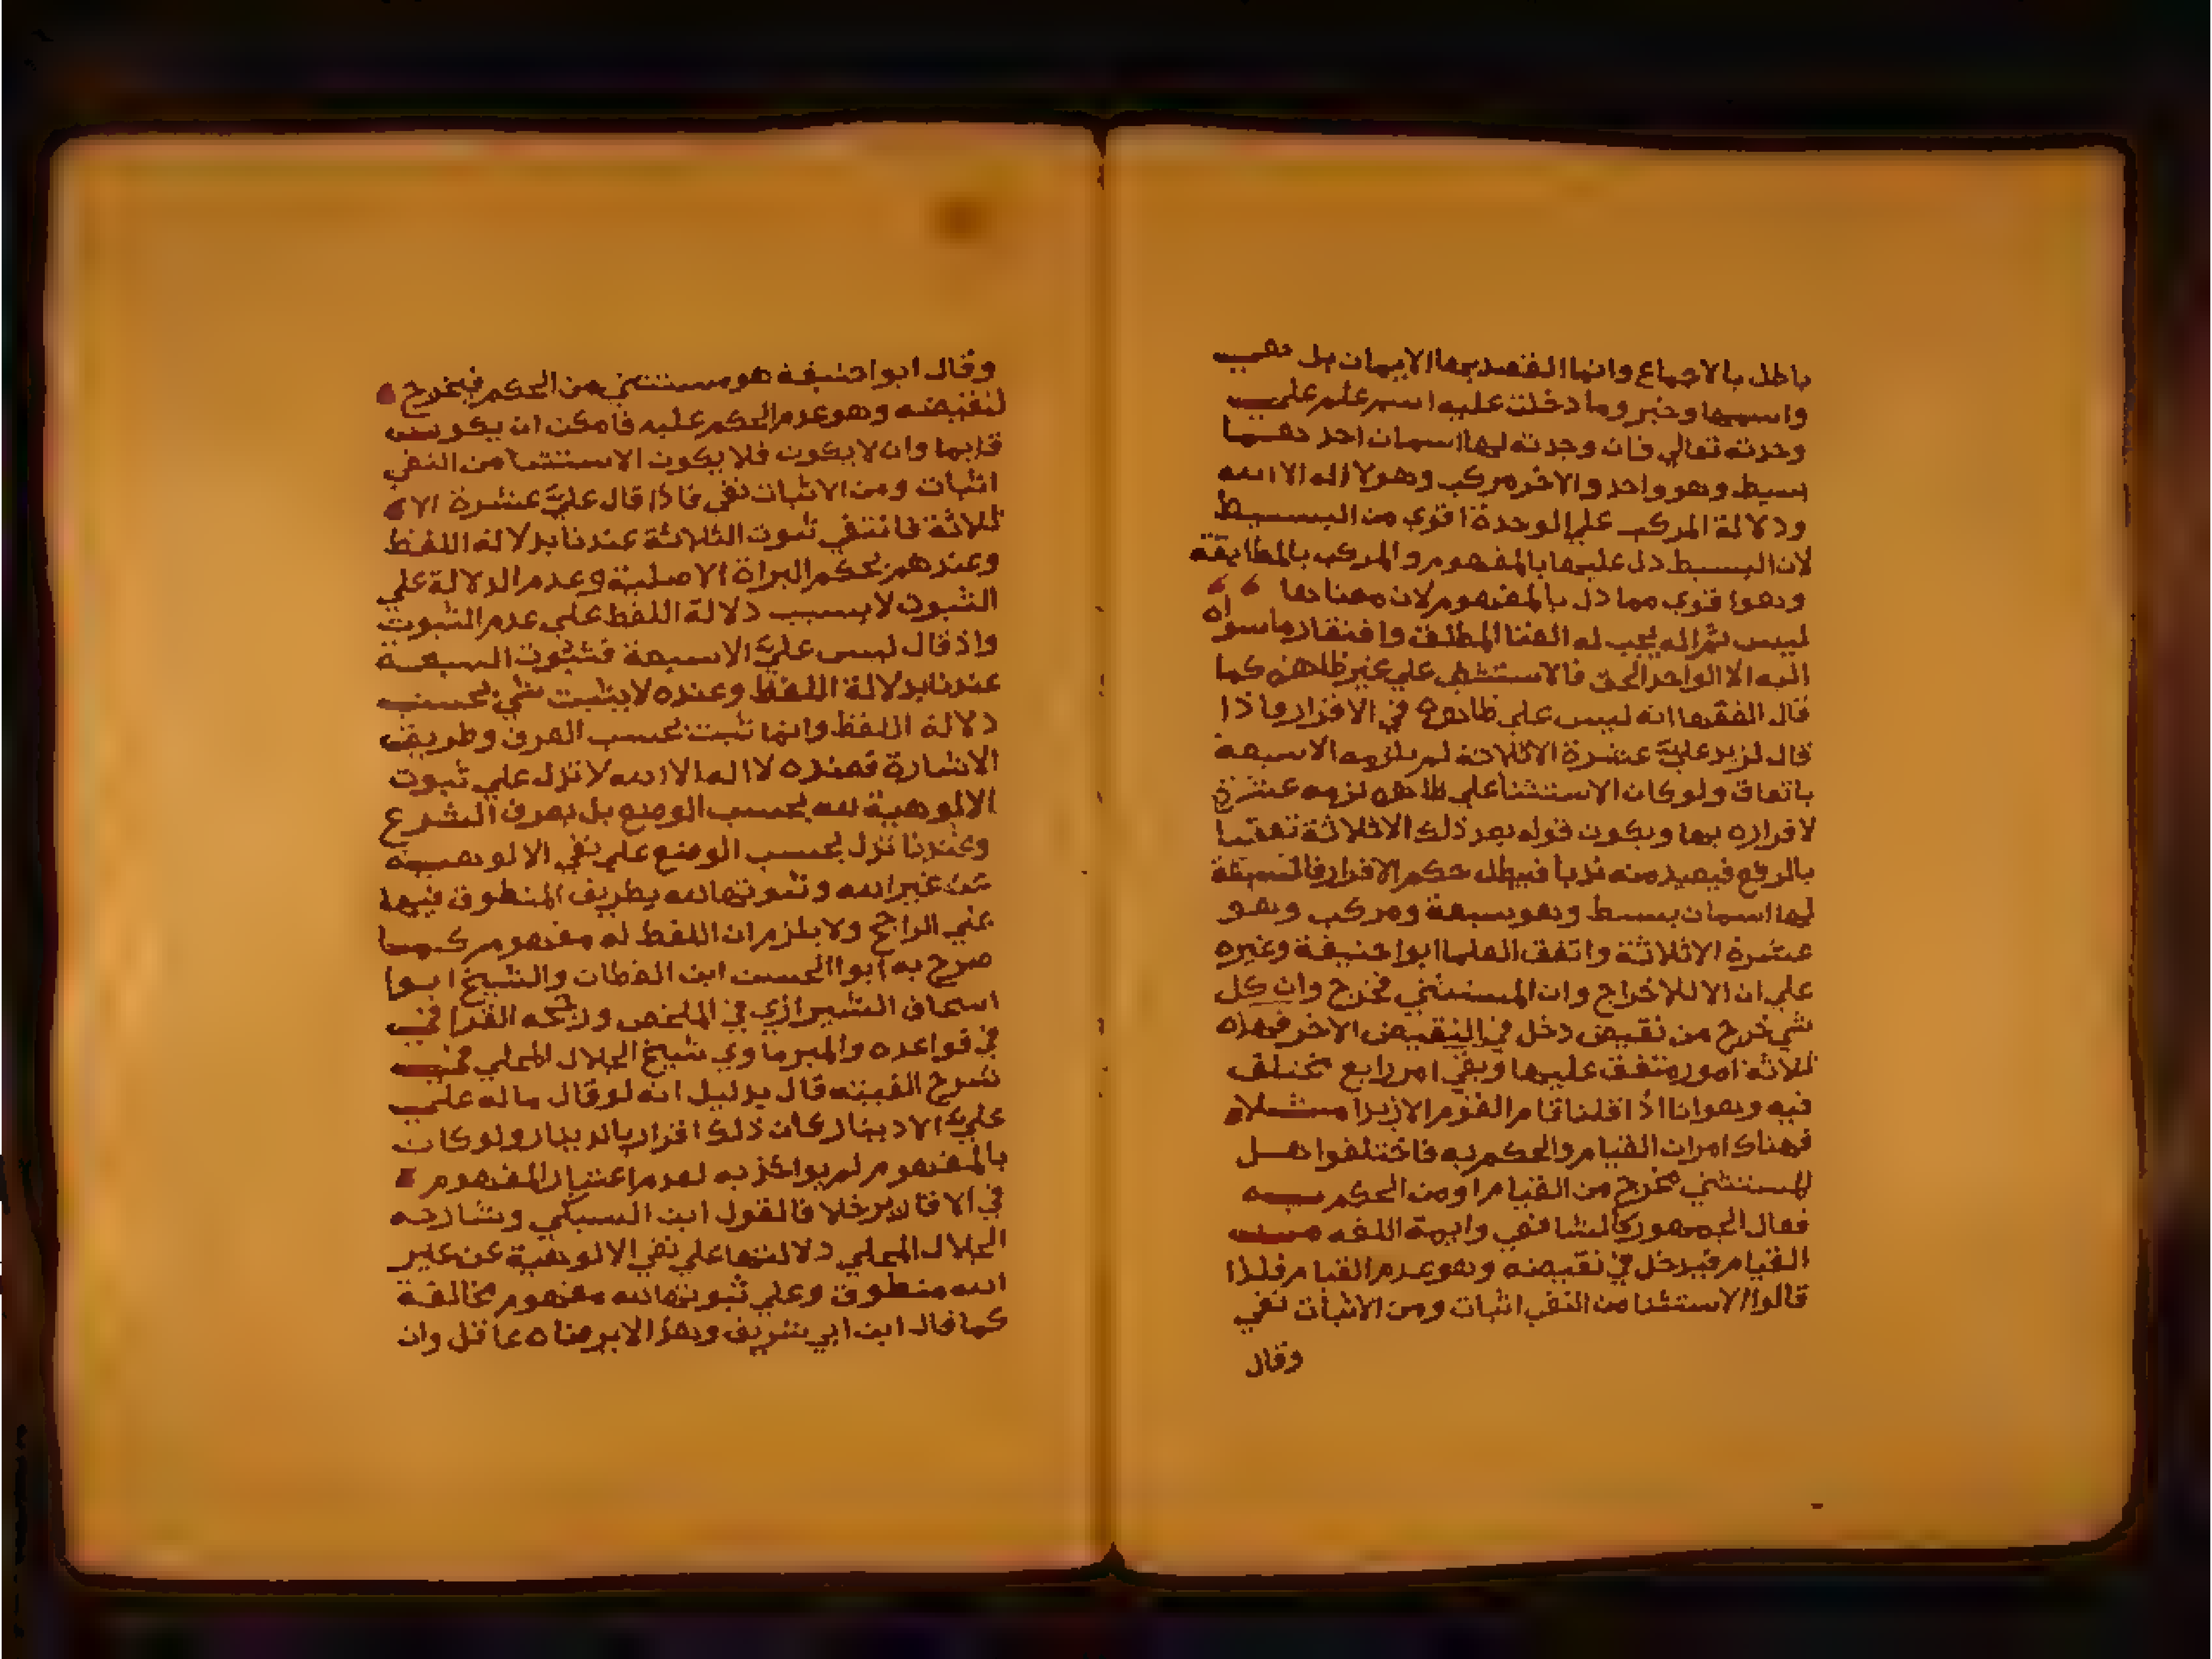 باطل بالاجماع وانما القصد بها الايمان بل هي
واسمها وخبر وما دخلت عليه اسم علم علي
وحدته تعالي فان وجدته لها اسمان احدهما
بسيط وهو واحد والاخر مركب وهو لا اله الا الله
ودلالة المركب علي الوحدة اقوي من البسيط
لان البسيط دل عليها بالمفهوم والمركب بالمطابقة
وهو اقوي مما دل بالمفهوم لان معناها
ليس ثم اله يجب له الغنا المطلق وافتقار ما سواه
اليه الا الواحد الحق فالاستثنا علي غير ظاهره كما
قال الفقها انه ليس علي ظاهره في الاقرار واذا
قال لزيد علي عشرة الا ثلاثة لم يلزمه الا سبعة
باتفاق ولو كان الاستثنا علي ظاهره لزمه عشرة
لاقراره بها ويكون قوله بعد ذلك الا ثلاثة تعقيبا
بالرفع فيصير منه ندبا فيبطل حكم الاقرار فالسبعة
لها اسمان بسيط وهو سبعة ومركب وهو
عشرة الا ثلاثة واتفق العلما ابوا حنيفة وغيره
علي ان الا للاخراج وان المستثني مخرج وان كل
شي خرج من نقيض دخل في النقيض الاخر فهذه
ثلاثة امور متفق عليها وبقي امر رابع مختلف
فيه وهو انا اذا قلنا قام القوم الا زيدا مثلا
فهناك امران القيام والحكم به فاختلفوا هل
المستثني مخرج من القيام او من الحكم به
فقال الجمهور كالشافعي وايمة اللغه من
القيام فيدخل في نقيضه وهو عدم القيام فلذا
قالوا الاستثنا من النفي اثبات ومن الاثبات نفي
وقال
وقال ابوا حنيفة هو مستثني من الحكم فيخرج
لنقيضه وهو عدم الحكم عليه فامكن ان يكون
قايما وان لا يكون فلا يكون الاستثنا من النفي
اثبات ومن الاثبات نفي فاذا قال علي عشرة الا
ثلاثة فانتفي ثبوت الثلاثة عندنا بدلالة اللفظ
وعندهم بحكم البراة الاصلية وعدم الدلالة علي
الثبوت لا بسبب دلالة اللفظ علي عدم الثبوت
واذ قال ليس علي الا سبعة فثبوت السبعة
عندنا بدلالة اللفظ وعنده لا يثبت شي بحسب
دلالة اللفظ وانما تثبت بحسب العرف وطريق
الاشارة فعنده لا اله الا الله لا تدل علي ثبوت
الالوهية لله بحسب الوضع بل بعرف الشرع
وعندنا تدل بحسب الوضع علي نفي الالوهيه
عن غير الله وثبوتها لله بطريق المنطوق فيها
علي الراجح ولا يلزم ان اللفظ له مفهوم كما
صرح به ابوا الحسن ابن القطان والشيخ ابوا
اسحاق الشيرازي في الملخص ورجحه القرافي
في قواعده والبرماوي شيخ الجلال المحلي في
شرح الفيته قال بدليل انه لو قال ماله علي
علي الا دينار كان ذلك اقرار بالدينار ولو كان
بالمفهوم لم يواخذ به لعدم اعتبار المفهوم
في الاقارير خلافا لقول ابن السبكي وشارحه
الجلال المحلي دلالتها علي نفي الالوهية عن غير
الله منطوق وعلي ثبوتها لله مفهوم مخالفة
كما قال ابن ابي شريف وهذا لا يرضاه عاقل وان